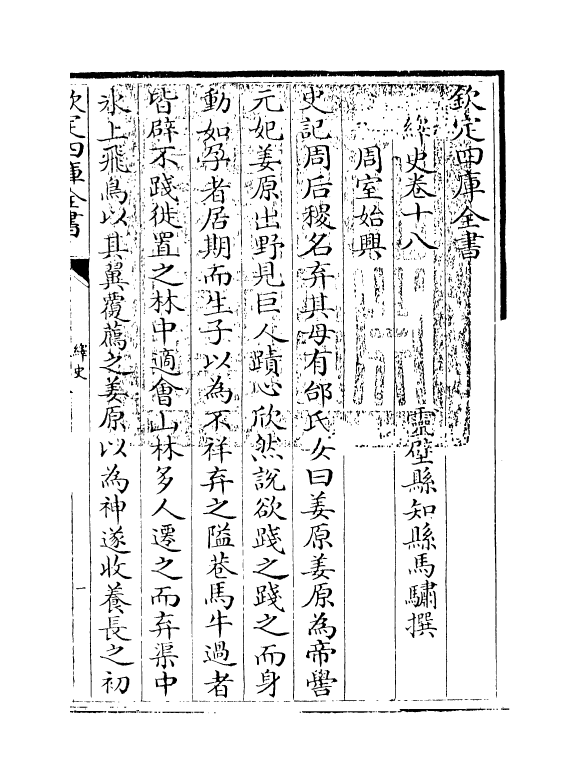 欽定四庫全書
繹史卷十八
靈壁縣知縣馬驌撰
周室始興
史記周后稷名弃其母有邰氏女曰姜原姜原為帝嚳
元妃姜原出野見巨人蹟心欣然說欲踐之踐之而身
動如孕者居期而生子以為不祥弃之隘巷馬牛過者
皆辟不踐徙置之林中適會山林多人遷之而弃渠中
氷上飛鳥以其翼覆薦之姜原以為神遂收養長之初
欽定四庫全書
繹史
一